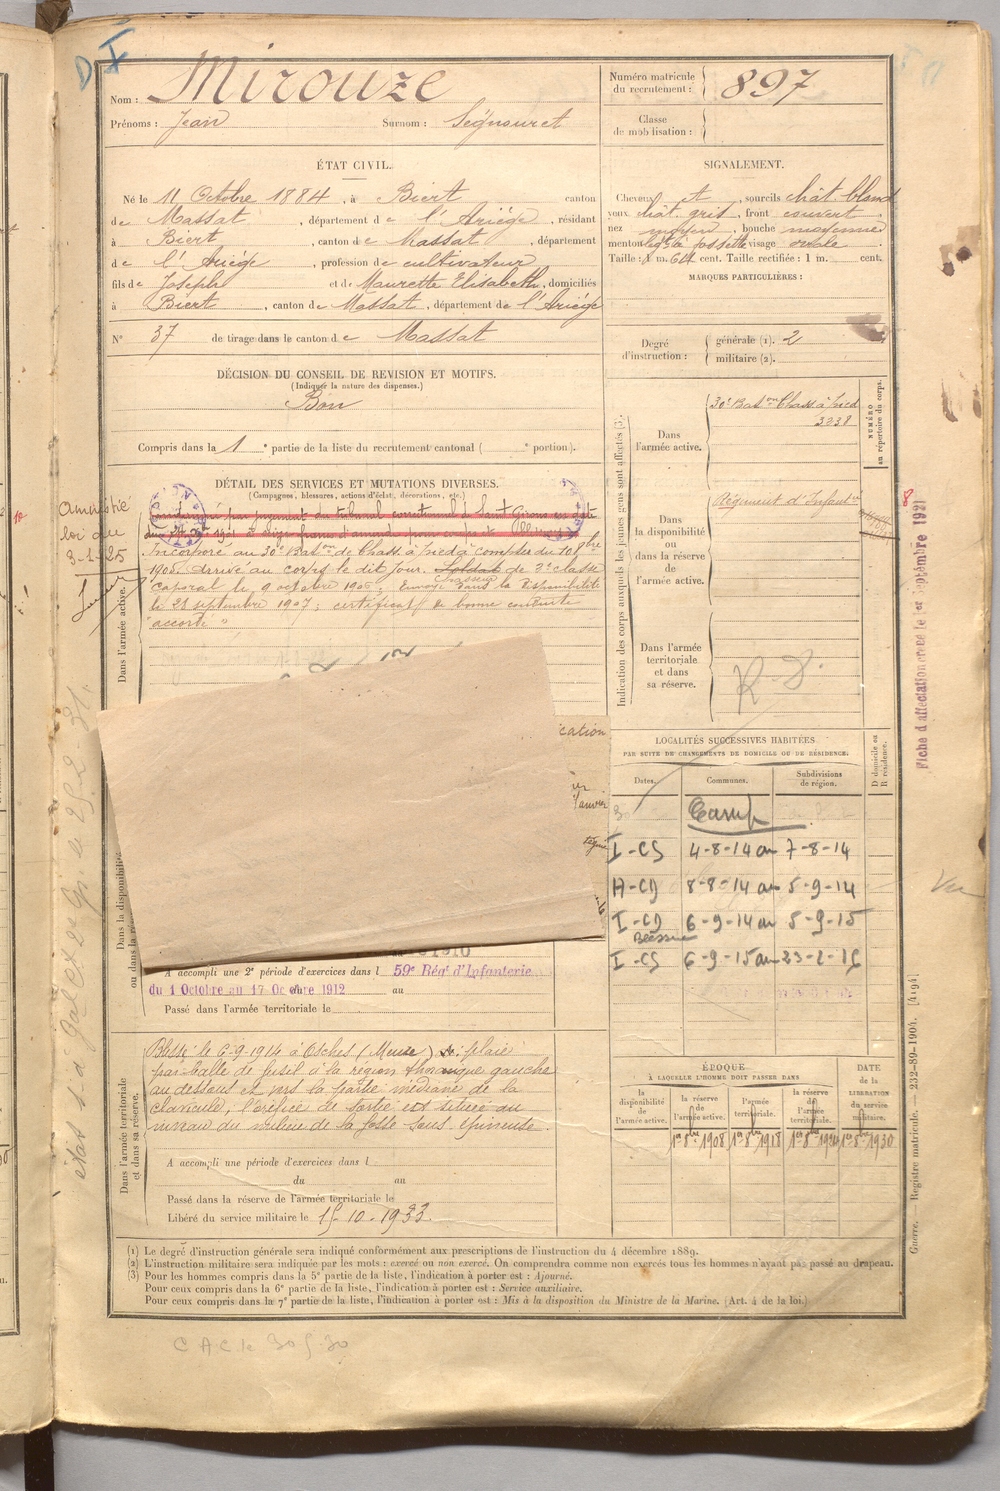 Nom : Mirouze
Prénoms : Jean Surnom : Ségnouret
Numéro matricule du recrutement : 897
Classe de mobilisation :
ÉTAT CIVIL.
Né le 11 Octobre 1884, à Biert canton
de Massat, département de l'Ariège, résidant
à Biert, canton de Massat, département
de l'Ariège, profession de cultivateur
fils de Joseph et de Maurette Elisabeth, domiciliés
à Biert, canton de Massat, département de l'Ariège
N° 37 de tirage dans le canton de Massat
SIGNALEMENT.
Cheveux et, sourcils chât. blond
yeux chât. gris, front couvert
nez moyen, bouche moyenne
menton à fossette visage ovale
Taille : 1 m. 64 cent. Taille rectifiée : 1 m. cent.
MARQUES PARTICULIÈRES :
Degré d'instruction : générale (1). 2
militaire (2).
DÉCISION DU CONSEIL DE REVISION ET MOTIFS.
(Indiquer la nature des dispenses.)
Bon
Compris dans la 1e partie de la liste du recrutement cantonal ( e portion).
DÉTAIL DES SERVICES ET MUTATIONS DIVERSES.
(Campagnes, blessures, actions d'éclat, décorations, etc.)
par jugement du tribunal correctionnel de Saint Girons en date
Incorporé au 30e Baton de Chass. à pied à compter du 10 8bre
1905. Arrivé au corps le dit jour. Soldat de 2e classe
Chasseur
Caporal le 9 octobre 1906; Envoyé dans la Disponibilité
le 28 septembre 1907; certificat de bonne conduite
"accordé"
Amnistié
loi du
3-1-25
Dans l'armée active.
Dans la disponibilité
ou dans la
cation
Janvier
A accompli une 2e période d'exercices dans l 59e Régt d'Infanterie
du 1 Octobre au 17 Octobre 1912 au
Passé dans l'armée territoriale le
Dans l'armée territoriale et dans sa réserve.
Blessé le 6-9-1914 à Osches (Meuse) plaie
par balle de fusil à la région thoracique gauche
au dessous et vers la partie médiane de la
clavicule, l'orifice de sortie est située au
niveau du milieu de la fosse sous épineuse.
A accompli une période d'exercices dans l
du au
Passé dans la réserve de l'armée territoriale le
Libéré du service militaire le 15-10-1933.
Indication des corps auxquels les jeunes gens sont affectés (3).
NUMÉRO au répertoire du corps.
Dans l'armée active.
30e Baton Chass. à pied
3238
Dans la disponibilité ou dans la réserve de l'armée active.
Régiment d'Infantie
Dans l'armée territoriale et dans sa réserve.
R. S.
LOCALITÉS SUCCESSIVES HABITÉES
PAR SUITE DE CHANGEMENTS DE DOMICILE OU DE RÉSIDENCE.
Dates. Communes. Subdivisions de région. D domicile ou R résidence.
Camp
I-CS 4-8-14 au 7-8-14
A-CD 8-8-14 au 5-9-14
I-CD 6-9-14 au 5-9-15
Blessure
I-CS 6-9-15 au 23-2-16
ÉPOQUE
À LAQUELLE L'HOMME DOIT PASSER DANS
la disponibilité de l'armée active.
la réserve de l'armée active.
l'armée territoriale.
la réserve de l'armée territoriale.
DATE de la LIBÉRATION du service militaire.
1er 8bre 1908 1er 8bre 1918 1er 8bre 1924 1er 8bre 1930
Fiche d'affectation créée le 1er Septembre 1921
Guerre. — Registre matricule. — 232-89-1904. [4194]
(1) Le degré d'instruction générale sera indiqué conformément aux prescriptions de l'instruction du 4 décembre 1889.
(2) L'instruction militaire sera indiquée par les mots : exercé ou non exercé. On comprendra comme non exercés tous les hommes n'ayant pas passé au drapeau.
(3) Pour les hommes compris dans la 5e partie de la liste, l'indication à porter est : Ajourné.
Pour ceux compris dans la 6e partie de la liste, l'indication à porter est : Service auxiliaire.
Pour ceux compris dans la 7e partie de la liste, l'indication à porter est : Mis à la disposition du Ministre de la Marine. (Art. 4 de la loi.)